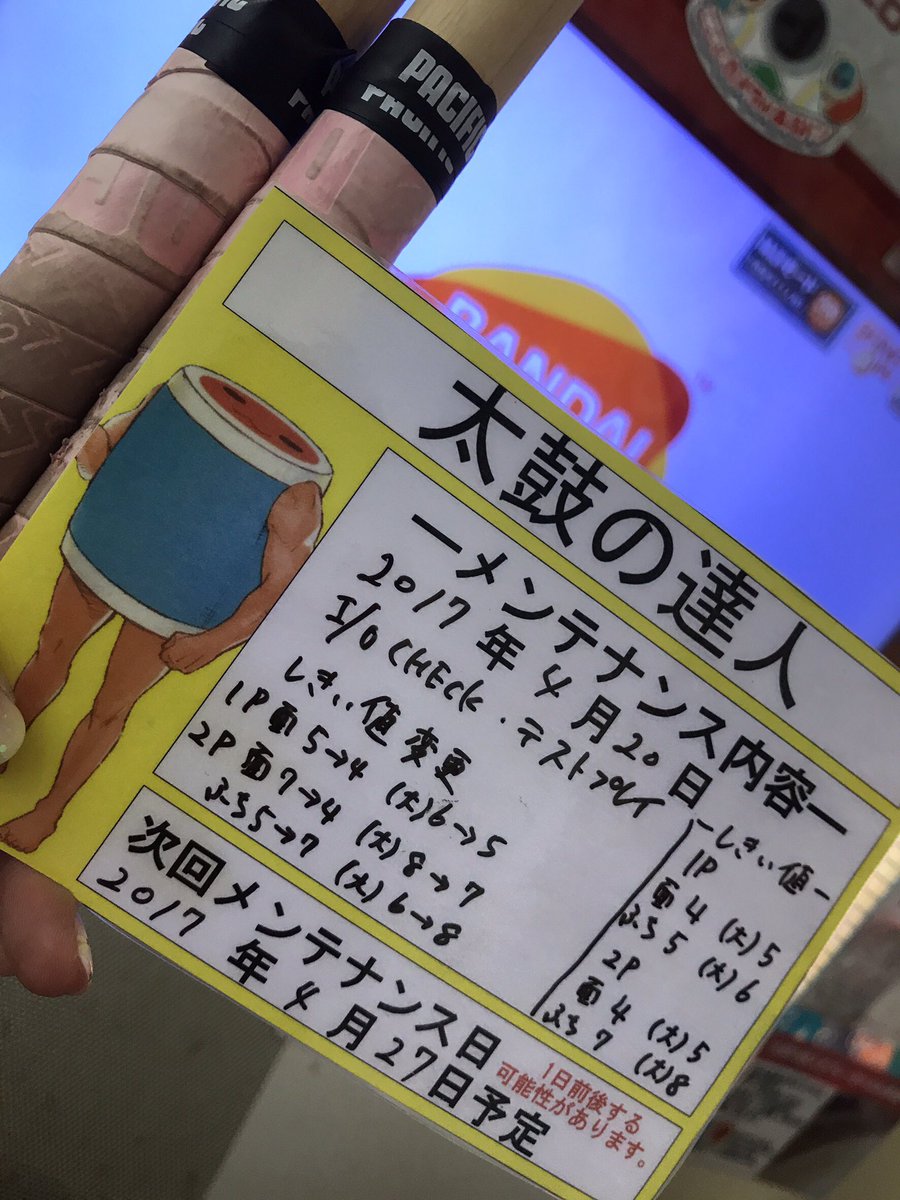 PACIFIC
PACIFIC
BANDAI
太鼓の達人
ーメンテナンス内容ー
2017年4月20日
I/O CHECK・テストプレイ
しきい値変更
1P 面5→4 (大)6→5
2P 面7→4 (大)8→7
ふち5→7 (大)6→8
ーしきい値ー
1P
面4 (大)5
ふち5 (大)6
2P
面4 (大)5
ふち7 (大)8
次回メンテナンス日
2017年4月27日予定
1日前後する
可能性があります。